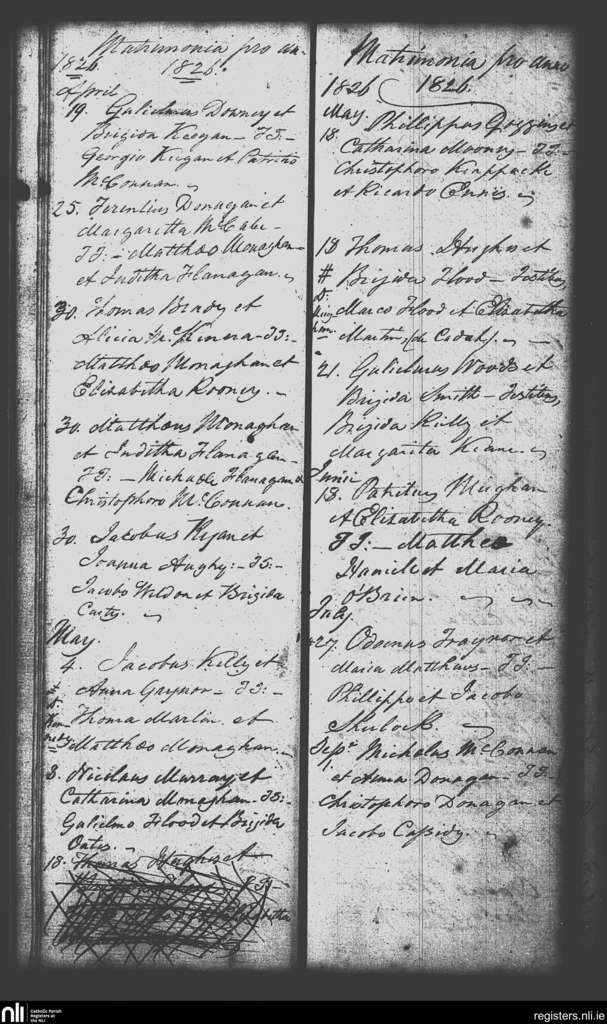 Matrimonia pro an.
1826 1826.
April
19. Gulielmus Downey et
Brigida Keegan - TT: -
Georgio Keegan et Patricio
McConnan.
25. Terentius Donagan et
Margaretta McCabe -
TT: - Matthæo Monaghan
et Juditha Flanagan.
30. Thomas Brady et
Alicia McKinera - TT: -
Matthæo Monaghan et
Elizabetha Rooney. -
30. Matthæus Monaghan
et Juditha Flanagan -
TT: - Michaele Flanagan et
Christophoro McConnan.
30. Jacobus Ryan et
Joanna Aughy: - TT: -
Jacobo Weldon et Brigida
Casty.
May.
4. Jacobus Kelly et
Anna Gaynor - TT: -
Thoma Martin et
Matthæo Monaghan.
8. Nicolaus Murray et
Catharina Monaghan - TT: -
Gulielmo Flood et Brigida
Oates.
18. Thomas Hughes et
Matrimonia pro anno
1826 1826.
May.
18. Phillippus Goggins et
Catharina Mooney - TT: -
Christophoro
et Ricardo Ennis.
18 Thomas Hughes et
# Brigida Flood - Testibus,
Marco Flood et Elizabetha
Martin,
21. Gulielmus Woods et
Brigida Smith - Testibus,
Brigida Reilly et
Margarita Keane.
Junii
18. Patritius Meighan
et Elizabetha Rooney.
TT: - Mattheo
Hamill et Maria
O'Brien.
July.
27. Edomus Traynor et
Maria Matthews - TT: -
Phillippo et Jacobo
Shulock.
Sepr. Michalus McConnan
1. et Anna Donagan - TT: -
Christophoro Donagan et
Jacobo Cassidy.
nli
Catholic Parish
Registers at
the NLI
registers.nli.ie